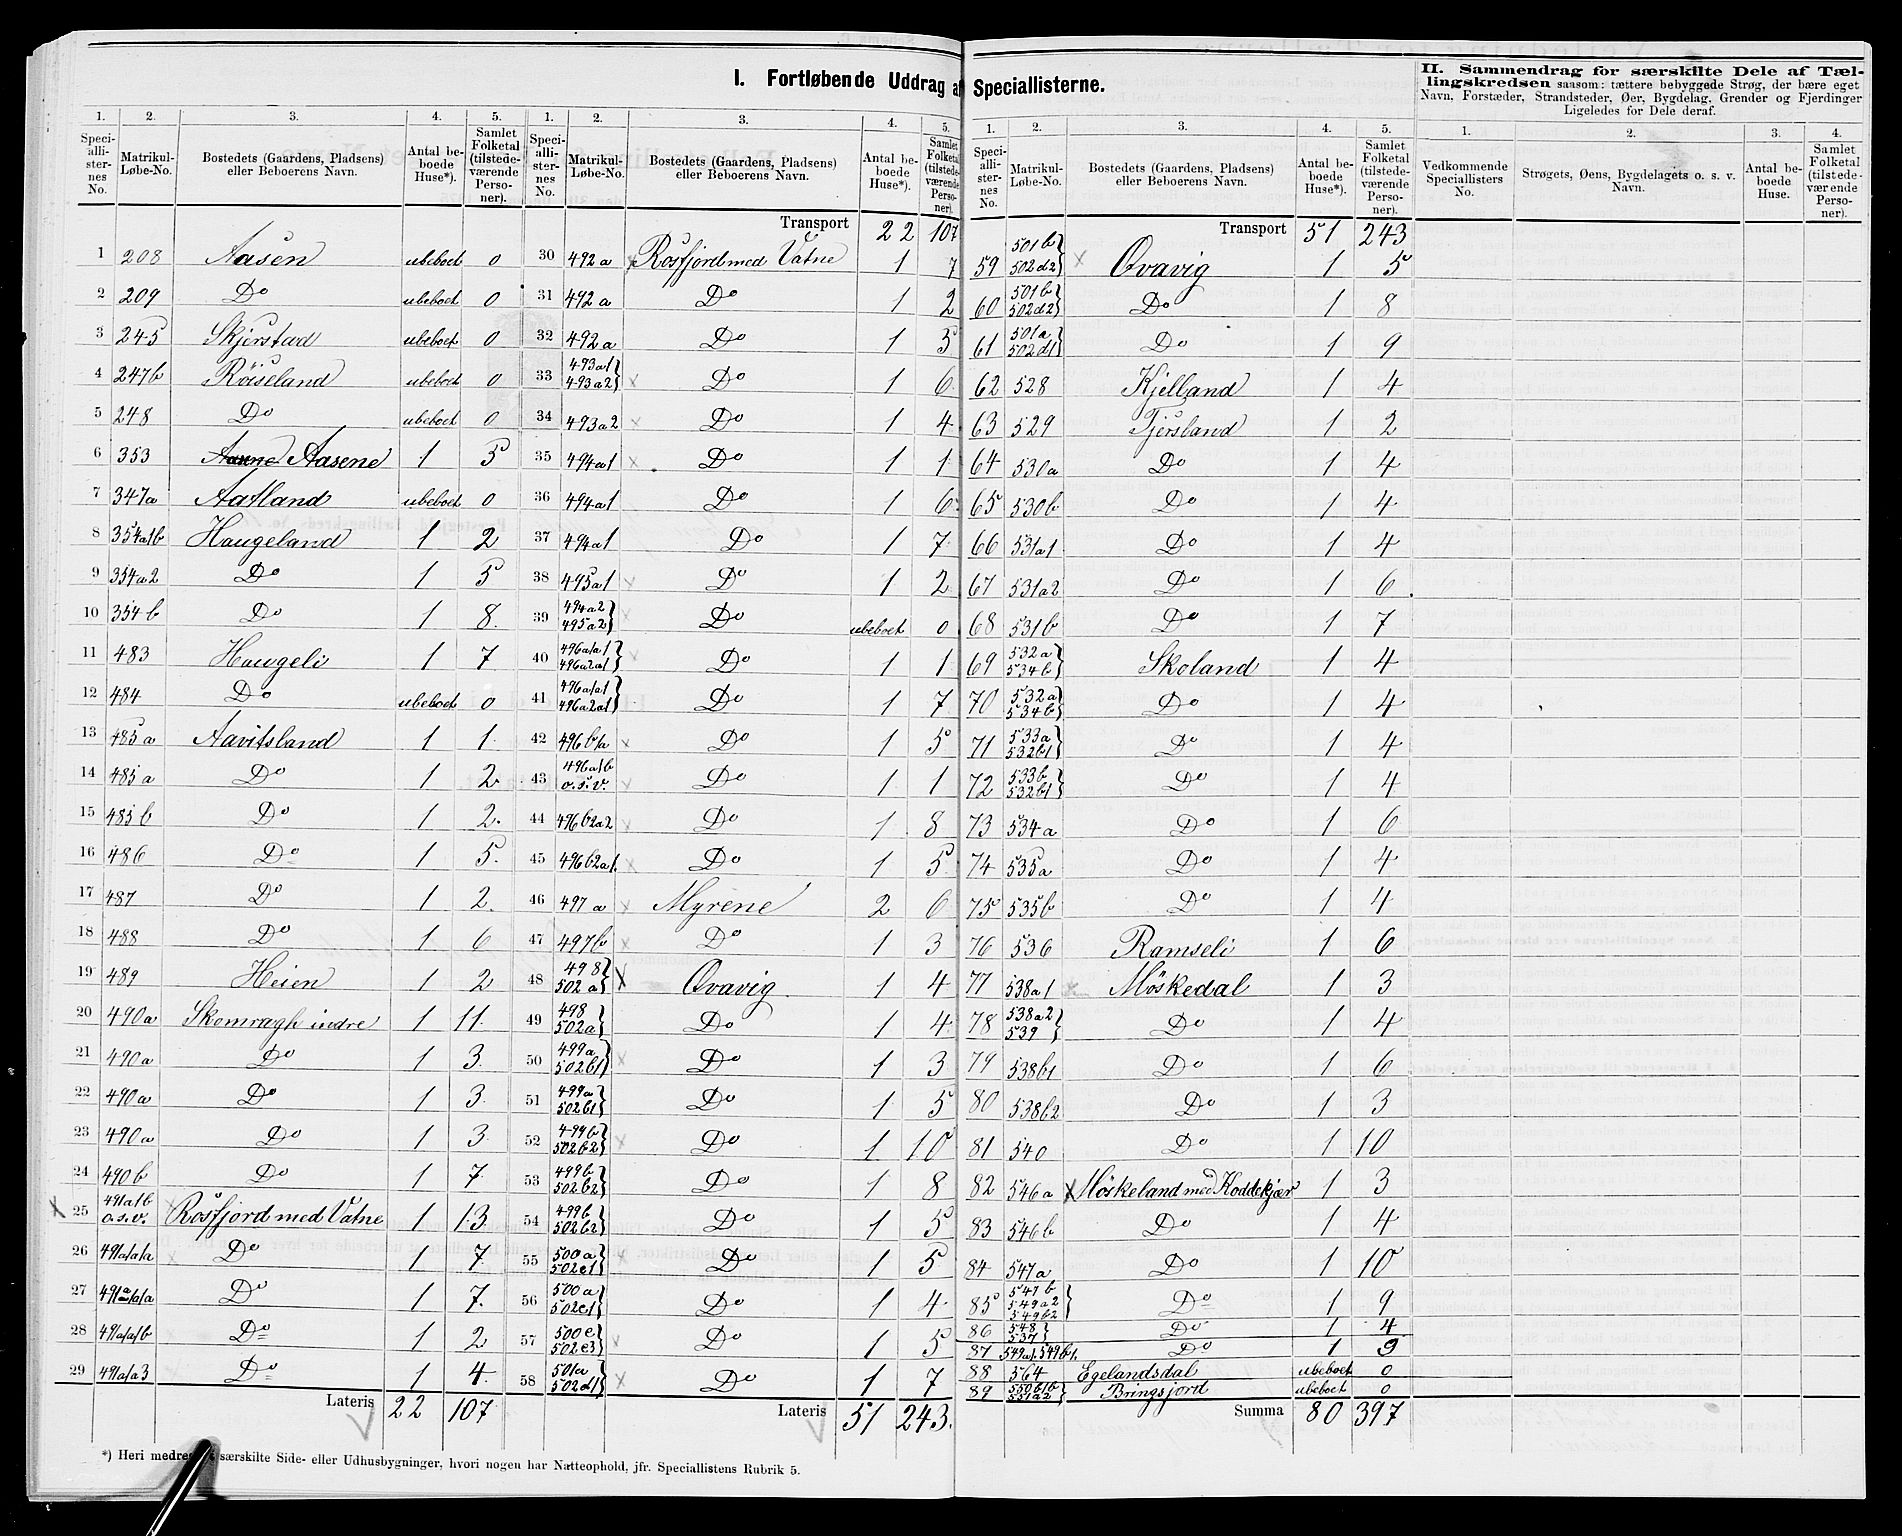 I. Fortløbende Uddrag af Speciallisterne.
II. Sammendrag for særskilte Dele af Tællingskredsen saasom: tættere bebyggede Strøg, der bære eget
Navn, Forstæder, Strandsteder, Øer, Bygdelag, Grender og Fjerdinger
Ligeledes for Dele deraf.
1. 2. 3. 4. 5.
Speciallisternes No. | Matrikul-Løbe-No. | Bostedets (Gaardens, Pladsens) eller Beboerens Navn. | Antal beboede Huse*). | Samlet Folketal (tilstedeværende Personer).
1 208 Aasen ubeboet 0
2 209 Do ubeboet 0
3 245 Skjerstad ubeboet 0
4 247b Röiseland ubeboet 0
5 248 Do ubeboet 0
6 353 Aasene 1 5
7 347a Aatland ubeboet 0
8 354a1b Haugeland 1 2
9 354a2 Do 1 5
10 354b Do 1 8
11 483 Haugeli 1 7
12 484 Do ubeboet 0
13 485a Aavitsland 1 1
14 485a Do 1 2
15 485b Do 1 2
16 486 Do 1 5
17 487 Do 1 2
18 488 Do 1 6
19 489 Heien 1 2
20 490a Skomragh indre 1 11
21 490a Do 1 3
22 490a Do 1 3
23 490a Do 1 3
24 490b Do 1 7
25 491a1b o.s.v. Rosfjord med Vatne 1 13
26 491a1a1a Do 1 7
27 Do 1 7
28 491a1a1b Do 1 2
29 491a1a3 Do 1 4
Lateris 22 107
1. 2. 3. 4. 5.
Speciallisternes No. | Matrikul-Løbe-No. | Bostedets (Gaardens, Pladsens) eller Beboerens Navn. | Antal beboede Huse*). | Samlet Folketal (tilstedeværende Personer).
Transport 22 107
30 492a Rosfjord med Vatne 1 7
31 492a Do 1 2
32 492a Do 1 5
33 493a1 493a2 Do 1 6
34 493a2 Do 1 4
35 494a1 Do 1 1
36 494a1 Do 1 6
37 494a1 Do 1 7
38 495a1 Do 1 2
39 494a2 495a2 Do ubeboet 0
40 496a1a1 496a2a1 Do 1 1
41 496a1a1 496a2a1 Do 1 7
42 496b1a Do 1 5
43 496a1b o.s.v. Do 1 1
44 496b2a2 Do 1 8
45 496b2a1 Do 1 5
46 497a Myrene 2 6
47 497b Do 1 3
48 498 502a Qvavig 1 4
49 498 502a Do 1 4
50 499a 502b1 Do 1 3
51 499a 502b1 Do 1 5
52 499b 502b2 Do 1 10
53 499b 502b2 Do 1 8
54 499b 502b2 Do 1 5
55 500a 502c1 Do 1 5
56 500a 502c1 Do 1 4
57 500c 502c3 Do 1 5
58 501a 502d1 Do 1 7
Lateris 51 243
1. 2. 3. 4. 5.
Speciallisternes No. | Matrikul-Løbe-No. | Bostedets (Gaardens, Pladsens) eller Beboerens Navn. | Antal beboede Huse*). | Samlet Folketal (tilstedeværende Personer).
Transport 51 243
59 501b 502d2 Qvavig 1 5
60 501b 502d2 Do 1 8
61 501a 502d1 Do 1 9
62 528 Kjelland 1 4
63 529 Tjersland 1 2
64 530a Do 1 4
65 530b Do 1 4
66 531a1 Do 1 4
67 531a2 Do 1 6
68 531b Do 1 7
69 532a 534b Skoland 1 4
70 532a 534b Do 1 4
71 533a 532b1 Do 1 4
72 533b 532b1 Do 1 4
73 534a Do 1 6
74 535a Do 1 4
75 535b Do 1 4
76 536 Ramseli 1 6
77 538a1 Möskedal 1 3
78 538a2 539 Do 1 4
79 538b1 Do 1 6
80 538b2 Do 1 3
81 540 Do 1 10
82 546a Höskeland med Koddekjær 1 3
83 546b Do 1 4
84 547a Do 1 10
85 547b 549a2 549b2 Do 1 9
86 548 537 Do 1 4
87 549a1. 549b1. Do 1 9
88 564 Egelandsdal ubeboet 0
89 550b1b 551a2 Bringsjord ubeboet 0
Summa 80 397
1. 2. 3. 4.
Vedkommende Speciallisters No. | Strøgets, Øens, Bygdelagets o. s. v. Navn. | Antal beboede Huse. | Samlet Folketal (tilstedeværende Personer).
*) Heri særskilte Side- eller Udhusbygninger, hvori nogen har Natteophold, jfr. Speciallistens Rubrik 5.